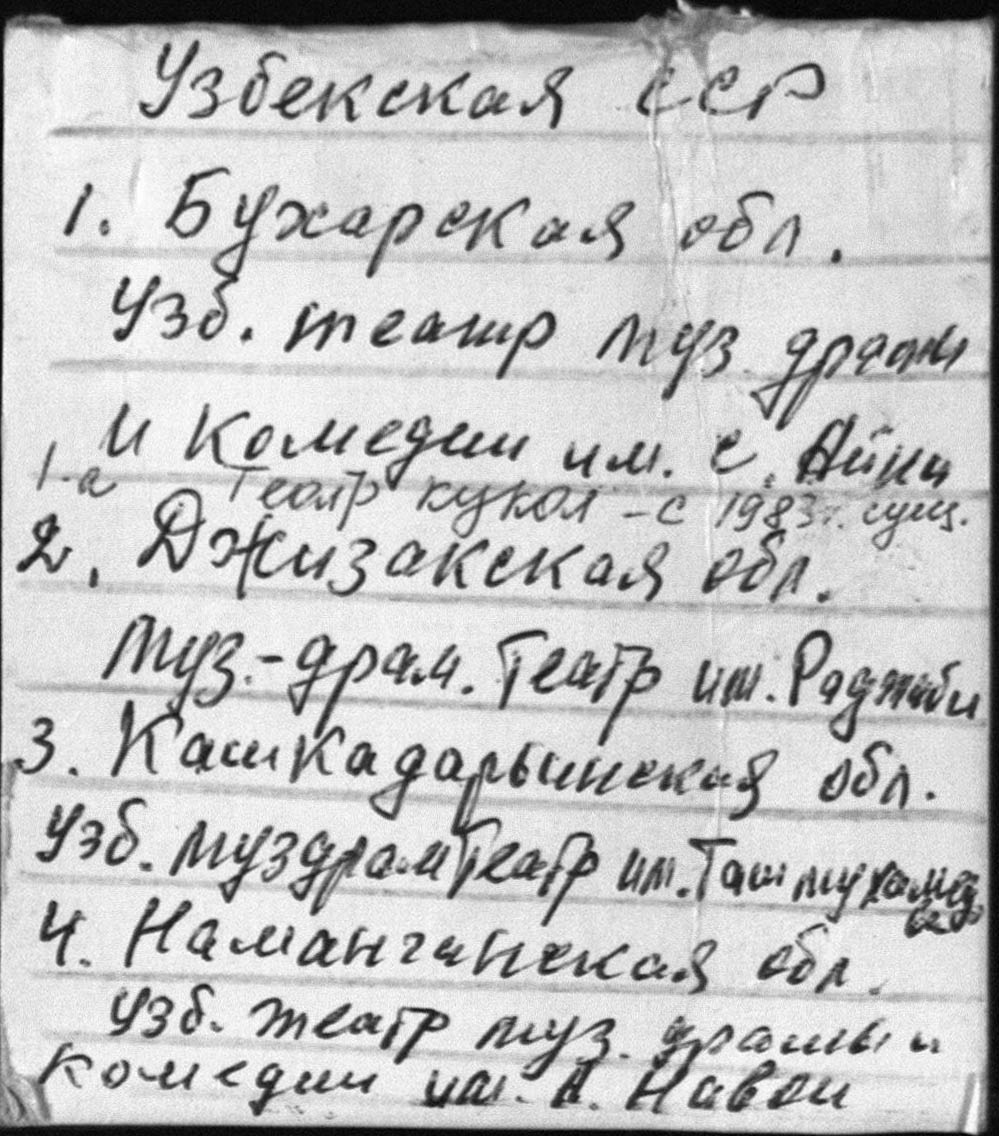 Узбекская ССР
1. Бухарская обл.
Узб. театр муз. драмы
и комедии им. С. Айни
1-а Театр кукол – с 1983 г. сущ.
2. Джизакская обл.
Муз.-драм. Театр им. Раджаби
3. Кашкадарьинская обл.
Узб. муздрамТеатр им. Ташмухамедова
4. Наманганская обл.
Узб. театр муз. драмы и
комедии им. А. Навои